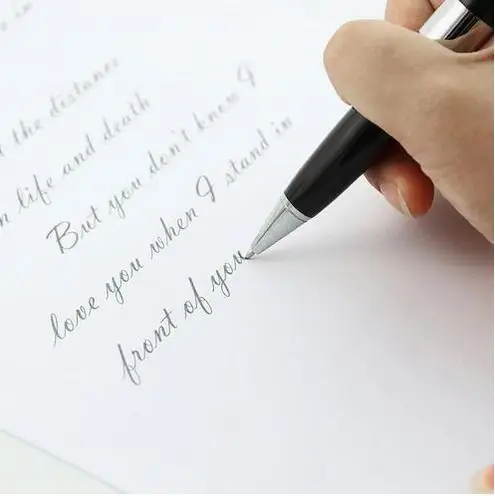 the distance
life and death
But you don't know I
love you when I stand in
front of you